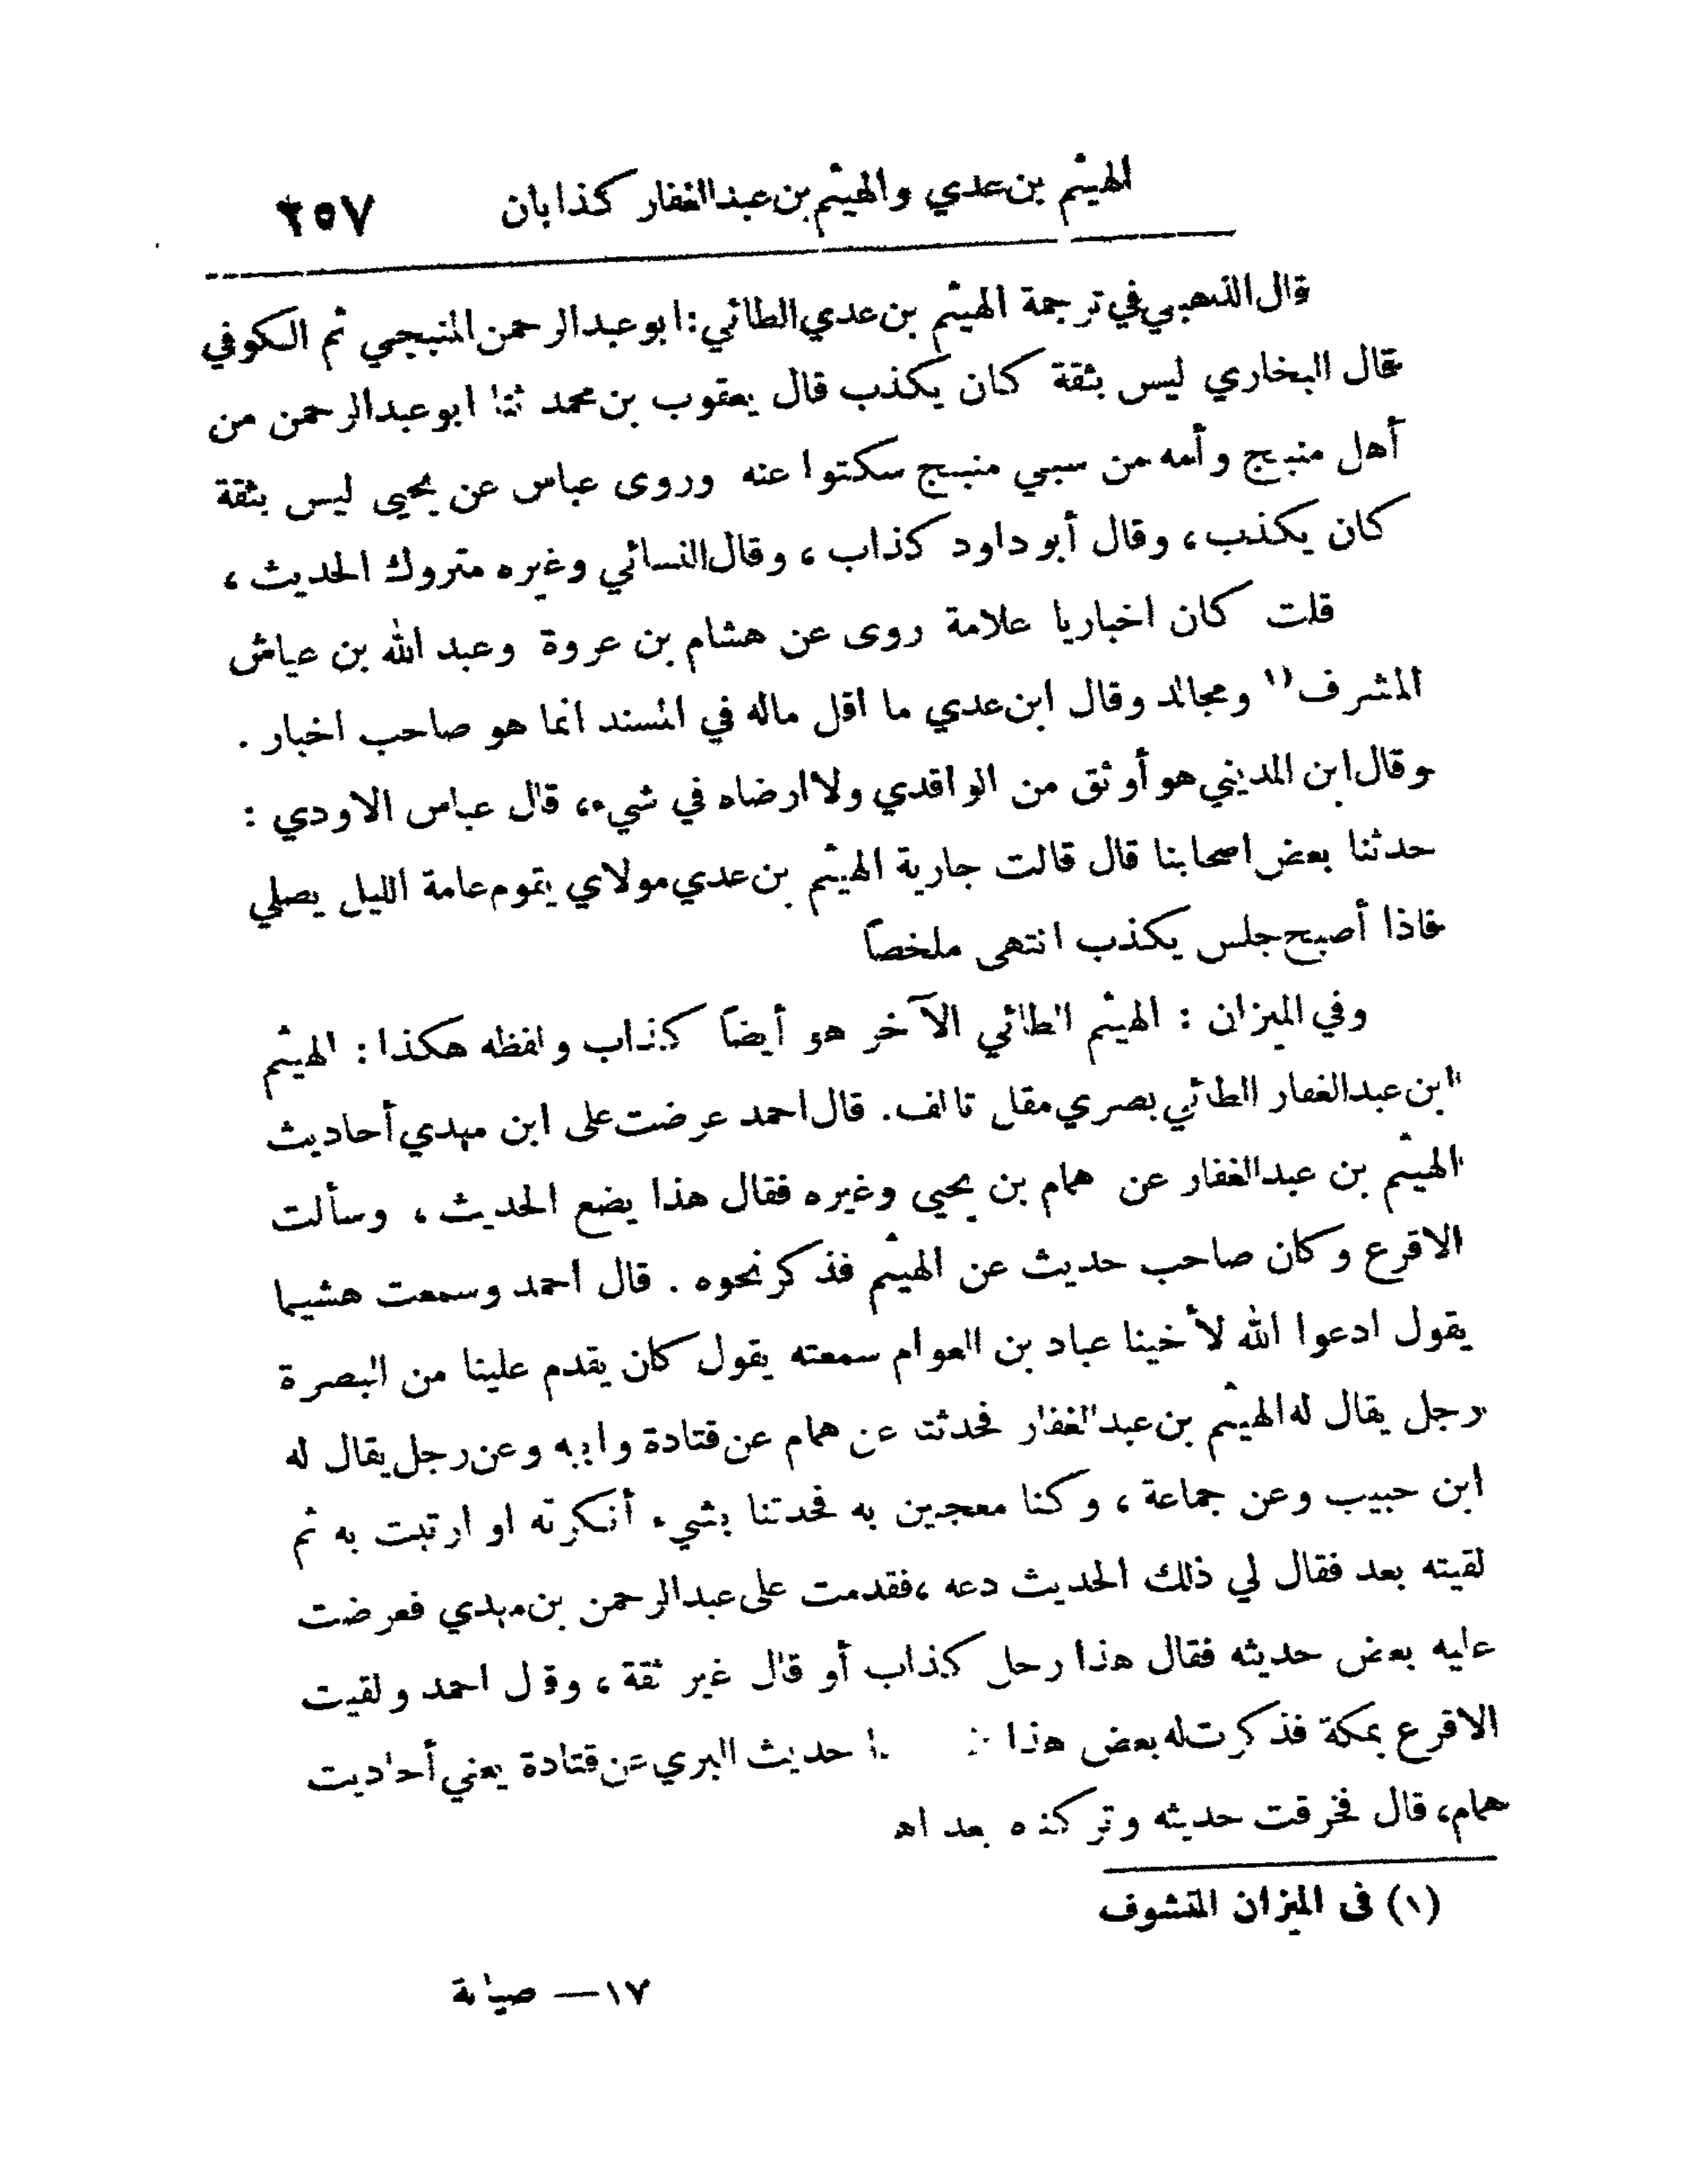 الهيثم بن عدي والهيثم بن عبدالغفار كذابان ٢٥٧
قال الذهبي في ترجمة الهيثم بن عدي الطائي: ابو عبدالرحمن المنبجي ثم الكوفي
قال البخاري ليس بثقة كان يكذب قال يعقوب بن محمد ثنا ابو عبدالرحمن من
أهل منبج وأمه من سبي منبج سكتوا عنه وروى عباس عن يحيى ليس بثقة
كان يكذب، وقال أبو داود كذاب، وقال النسائي وغيره متروك الحديث،
قلت كان اخباريا علامة روى عن هشام بن عروة وعبد الله بن عياش
المشرف (١) ومجالد وقال ابن عدي ما اقل ماله في المسند انما هو صاحب اخبار.
وقال ابن المديني هو أوثق من الواقدي ولا ارضاه في شيء، قال عباس الاودي:
حدثنا بعض اصحابنا قال قالت جارية الهيثم بن عدي مولاي يقوم عامة الليل يصلي
فاذا أصبح جلس يكذب انتهى ملخصاً
وفي الميزان: الهيثم الطائي الآخر هو أيضاً كذاب ولفظه هكذا: الهيثم
ابن عبدالغفار الطائي بصري مقل تالف. قال احمد عرضت على ابن مهدي أحاديث
الهيثم بن عبدالغفار عن همام بن يحيى وغيره فقال هذا يضع الحديث، وسألت
الاقرع وكان صاحب حديث عن الهيثم فذكر نحوه. قال احمد وسمعت هشيما
يقول ادعوا الله لأخينا عباد بن العوام سمعته يقول كان يقدم علينا من البصرة
رجل يقال له الهيثم بن عبدالغفار فحدثنا عن همام عن قتادة وابيه وعن رجل يقال له
ابن حبيب وعن جماعة، وكنا معجبين به فحدثنا بشيء أنكرته او ارتبت به ثم
لقيته بعد فقال لي ذلك الحديث دعه، فقدمت على عبدالرحمن بن مهدي فعرضت
عليه بعض حديثه فقال هذا رجل كذاب أو قال غير ثقة، وقال احمد ولقيت
الاقرع بمكة فذكرت له بعض هذا حديث البري عن قتادة يعني أحاديث
همام، قال فخرقت حديثه وتركناه بعد اه
(١) في الميزان المنتوف
١٧— صيانة